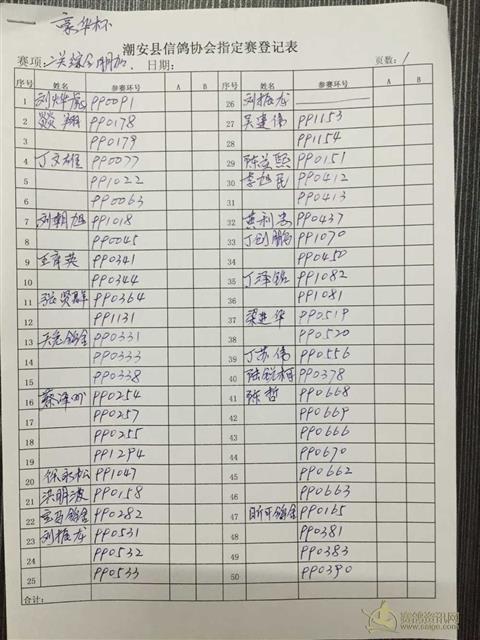 豪华杯
潮安县信鸽协会指定赛登记表
赛项: 日期: 页数: 1
序号 姓名 参赛环号 A B 序号 姓名 参赛环号 A B
1 刘烨彪 PP0091 26 刘振龙
2 翔 PP0178 27 吴建伟 PP1153
3 PP0179 28 PP1154
4 丁文雄 PP0077 29 陈益熙 PP0151
5 PP1022 30 李旭民 PP0412
6 PP0063 31 PP0413
7 刘朝旭 PP1018 32 黄利 PP0437
8 PP0045 33 丁创鹏 PP1070
9 王 英 PP0341 34 PP0450
10 PP0344 35 丁泽 PP1082
11 张贤群 PP0364 36 PP1081
12 PP1131 37 梁进华 PP0519
13 鸽舍 PP0331 38 PP0520
14 PP0333 39 丁苏伟 PP0556
15 PP0338 40 陆锐 PP0378
16 蔡泽 PP0254 41 陈哲 PP0668
17 PP0257 42 PP0669
18 PP0255 43 PP0666
19 PP1294 44 PP0670
20 保永松 PP1047 45 PP0662
21 洪明波 PP0158 46 PP0663
22 宝马鸽舍 PP0282 47 昕可鸽舍 PP0165
23 刘振龙 PP0531 48 PP0381
24 PP0532 49 PP0383
25 PP0533 50 PP0390
合计:
赛鸽资讯网
www.saige.com